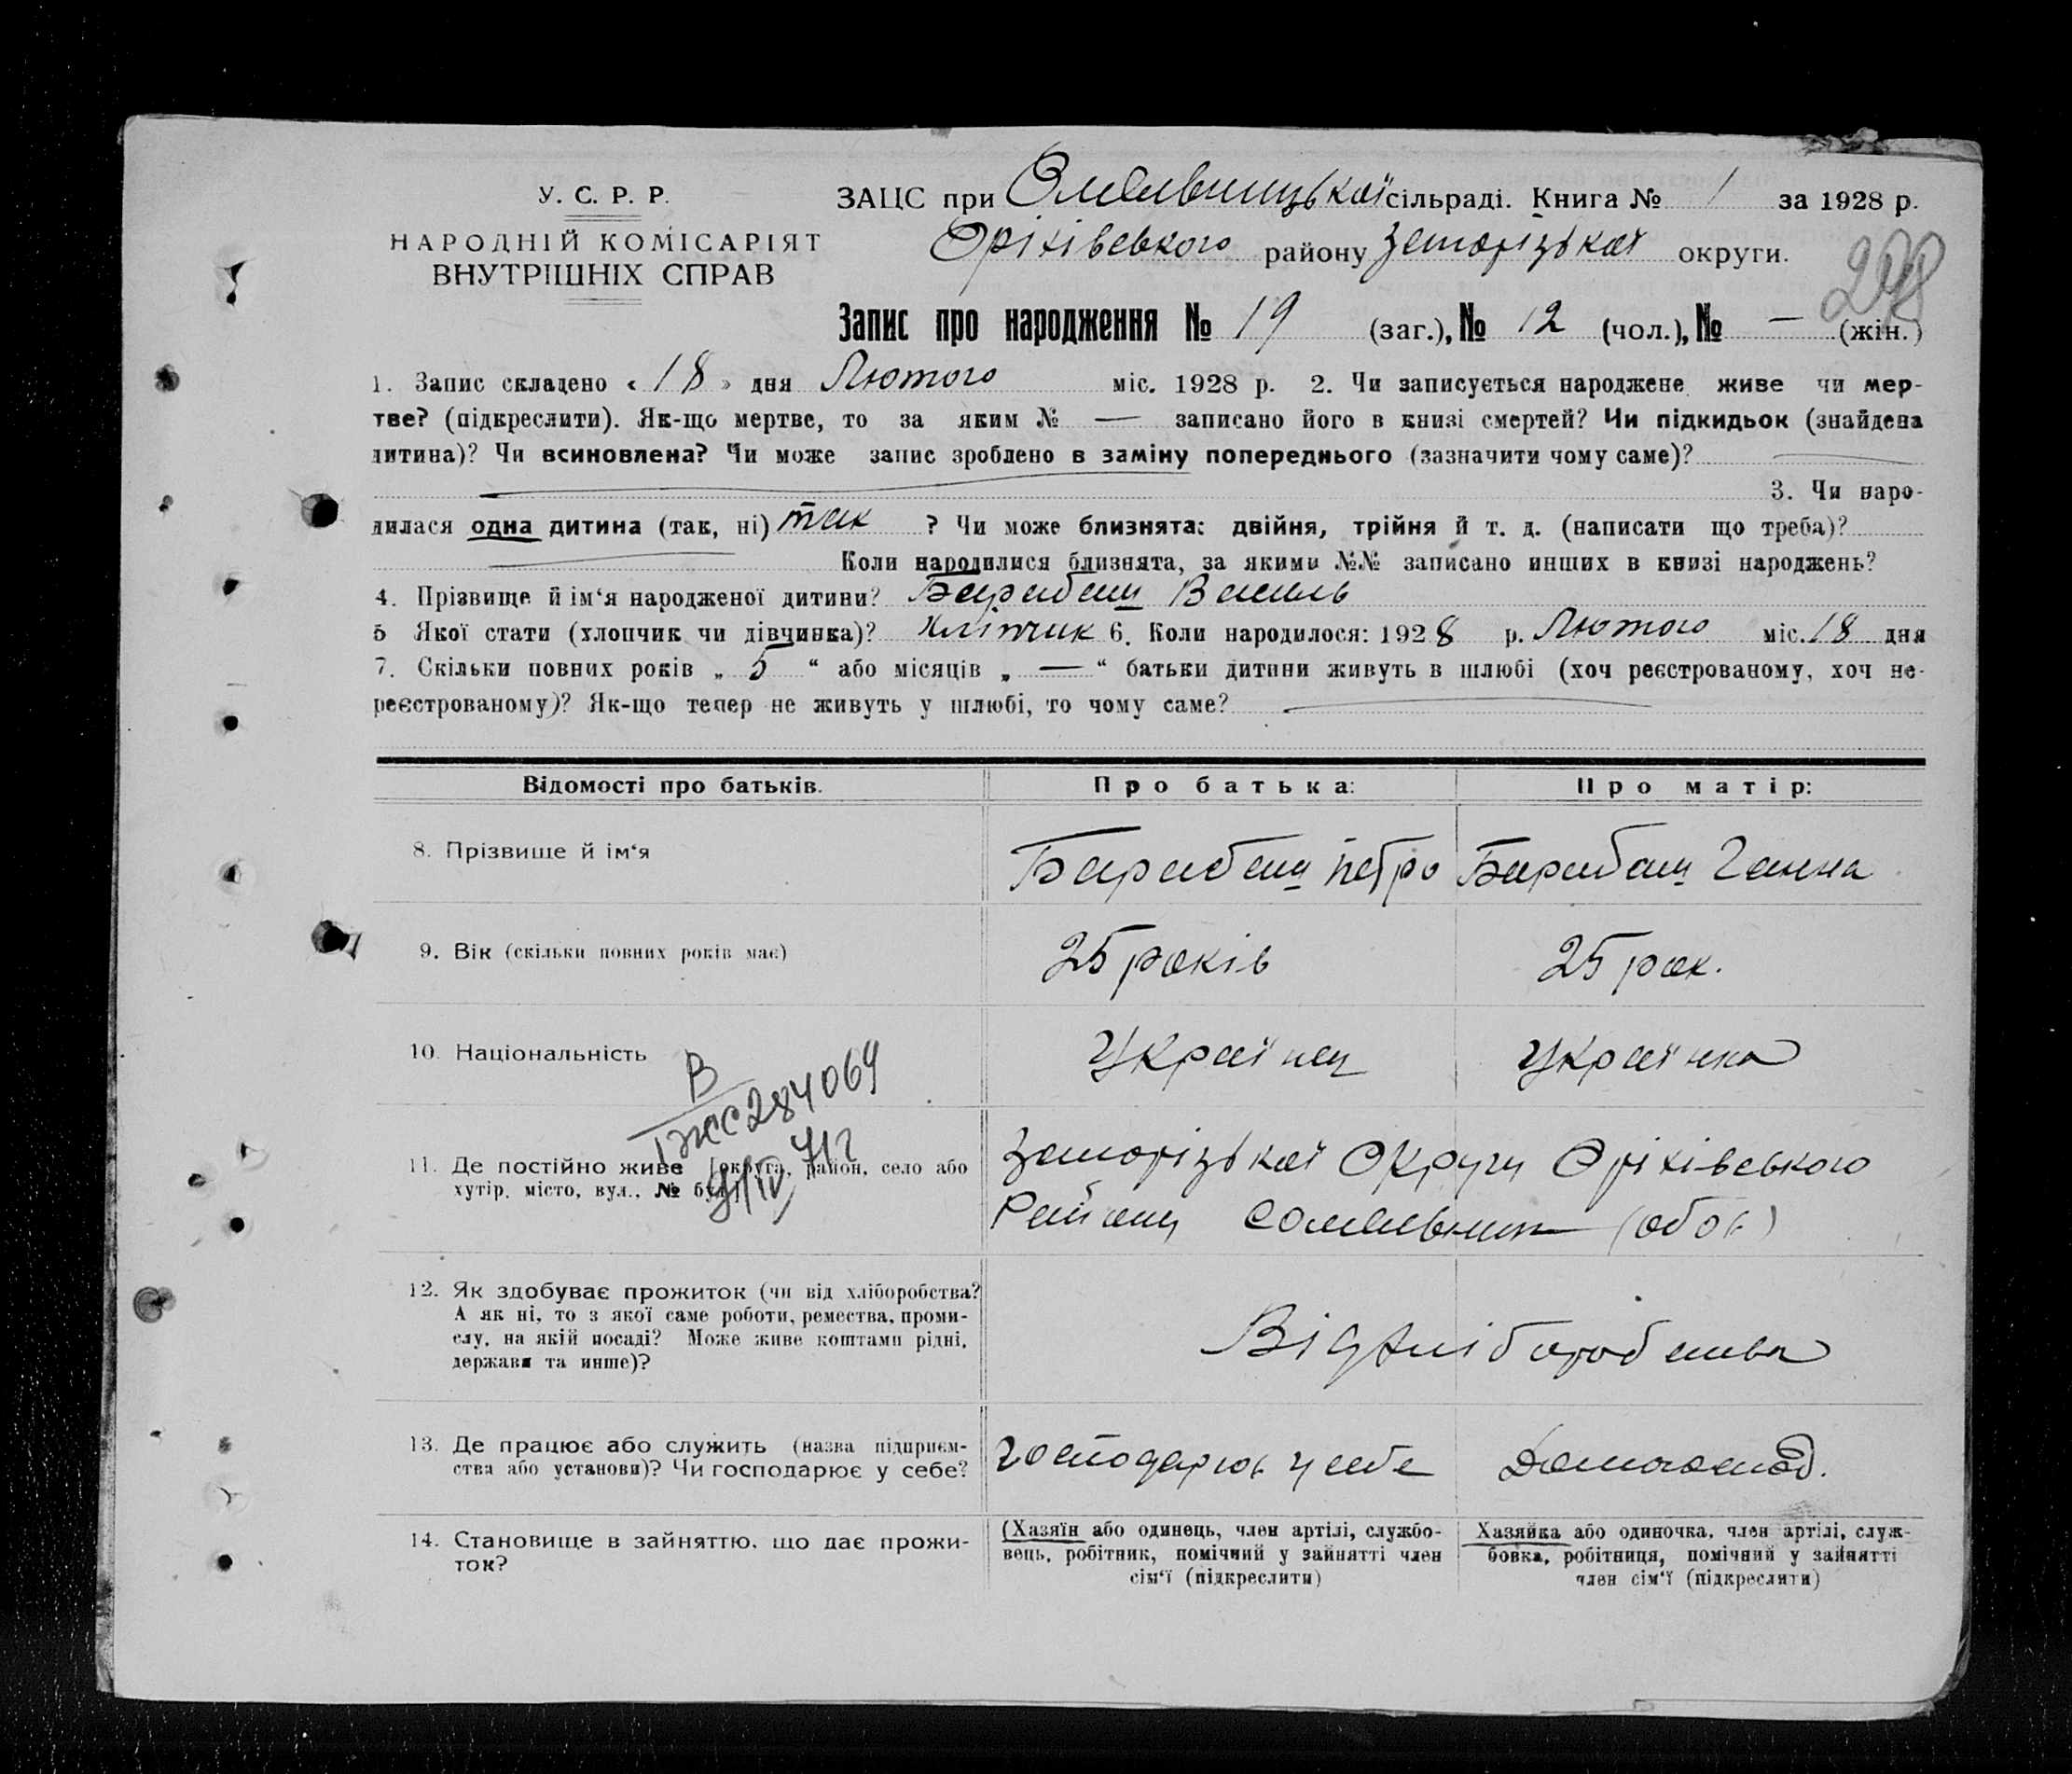 У. С. Р. Р.
НАРОДНІЙ КОМІСАРІЯТ
ВНУТРІШНІХ СПРАВ
ЗАЦС при Омельницької сільраді. Книга № 1 за 1928 р.
Оріхівського району Запорізької округи.
Запис про народження № 19 (заг.), № 12 (чол.), № — (жін.)
1. Запис складено « 18 » дня Лютого міс. 1928 р. 2. Чи записується народжене живе чи мер-
тве? (підкреслити). Як-що мертве, то за яким № — записано його в книзі смертей? Чи підкидьок (знайдена
дитина)? Чи всиновлена? Чи може запис зроблено в заміну попереднього (зазначити чому саме)?
3. Чи наро-
дилася одна дитина (так, ні) так ? Чи може близнята: двійня, трійня й т. д. (написати що треба)?
Коли народилися близнята, за якими №№ записано инших в книзі народжень?
4. Прізвище й ім‘я народженої дитини? Барабаш Василь
5 Якої стати (хлопчик чи дівчинка)? Хлопчик 6. Коли народилося: 1928 р. Лютого міс. 18 дня
7. Скільки повних років „ 5 “ або місяців „ — “ батьки дитини живуть в шлюбі (хоч реєстрованому, хоч не-
реєстрованому)? Як-що тепер не живуть у шлюбі, то чому саме?
Відомості про батьків. Про батька: Про матір:
8. Прізвище й ім‘я Барабаш Петро Барабаш Ганна
9. Вік (скільки повних років має) 25 років 25 рок.
10. Національність Українец Українка
В
284069
11. Де постійно живе (округа, район, село або
хутір, місто, вул., № буд.)
Запорізької Округи Оріхівського
Району с Омельник (обоє)
12. Як здобуває прожиток (чи від хліборобства?
А як ні, то з якої саме роботи, ремества, проми-
слу, на якій посаді? Може живе коштами рідні,
держави та инше)?
Від хліборобства
13. Де працює або служить (назва підприєм-
ства або установи)? Чи господарює у себе?
господарює у себе Домогоспод.
14. Становище в зайняттю, що дає прожи-
ток?
(Хазяїн або одинець, член артілі, службо-
вець, робітник, помічний у зайнятті член
сім‘ї (підкреслити)
Хазяйка або одиночка, член артілі, служ-
бовка, робітниця, помічний у зайнятті
член сім‘ї (підкреслити)